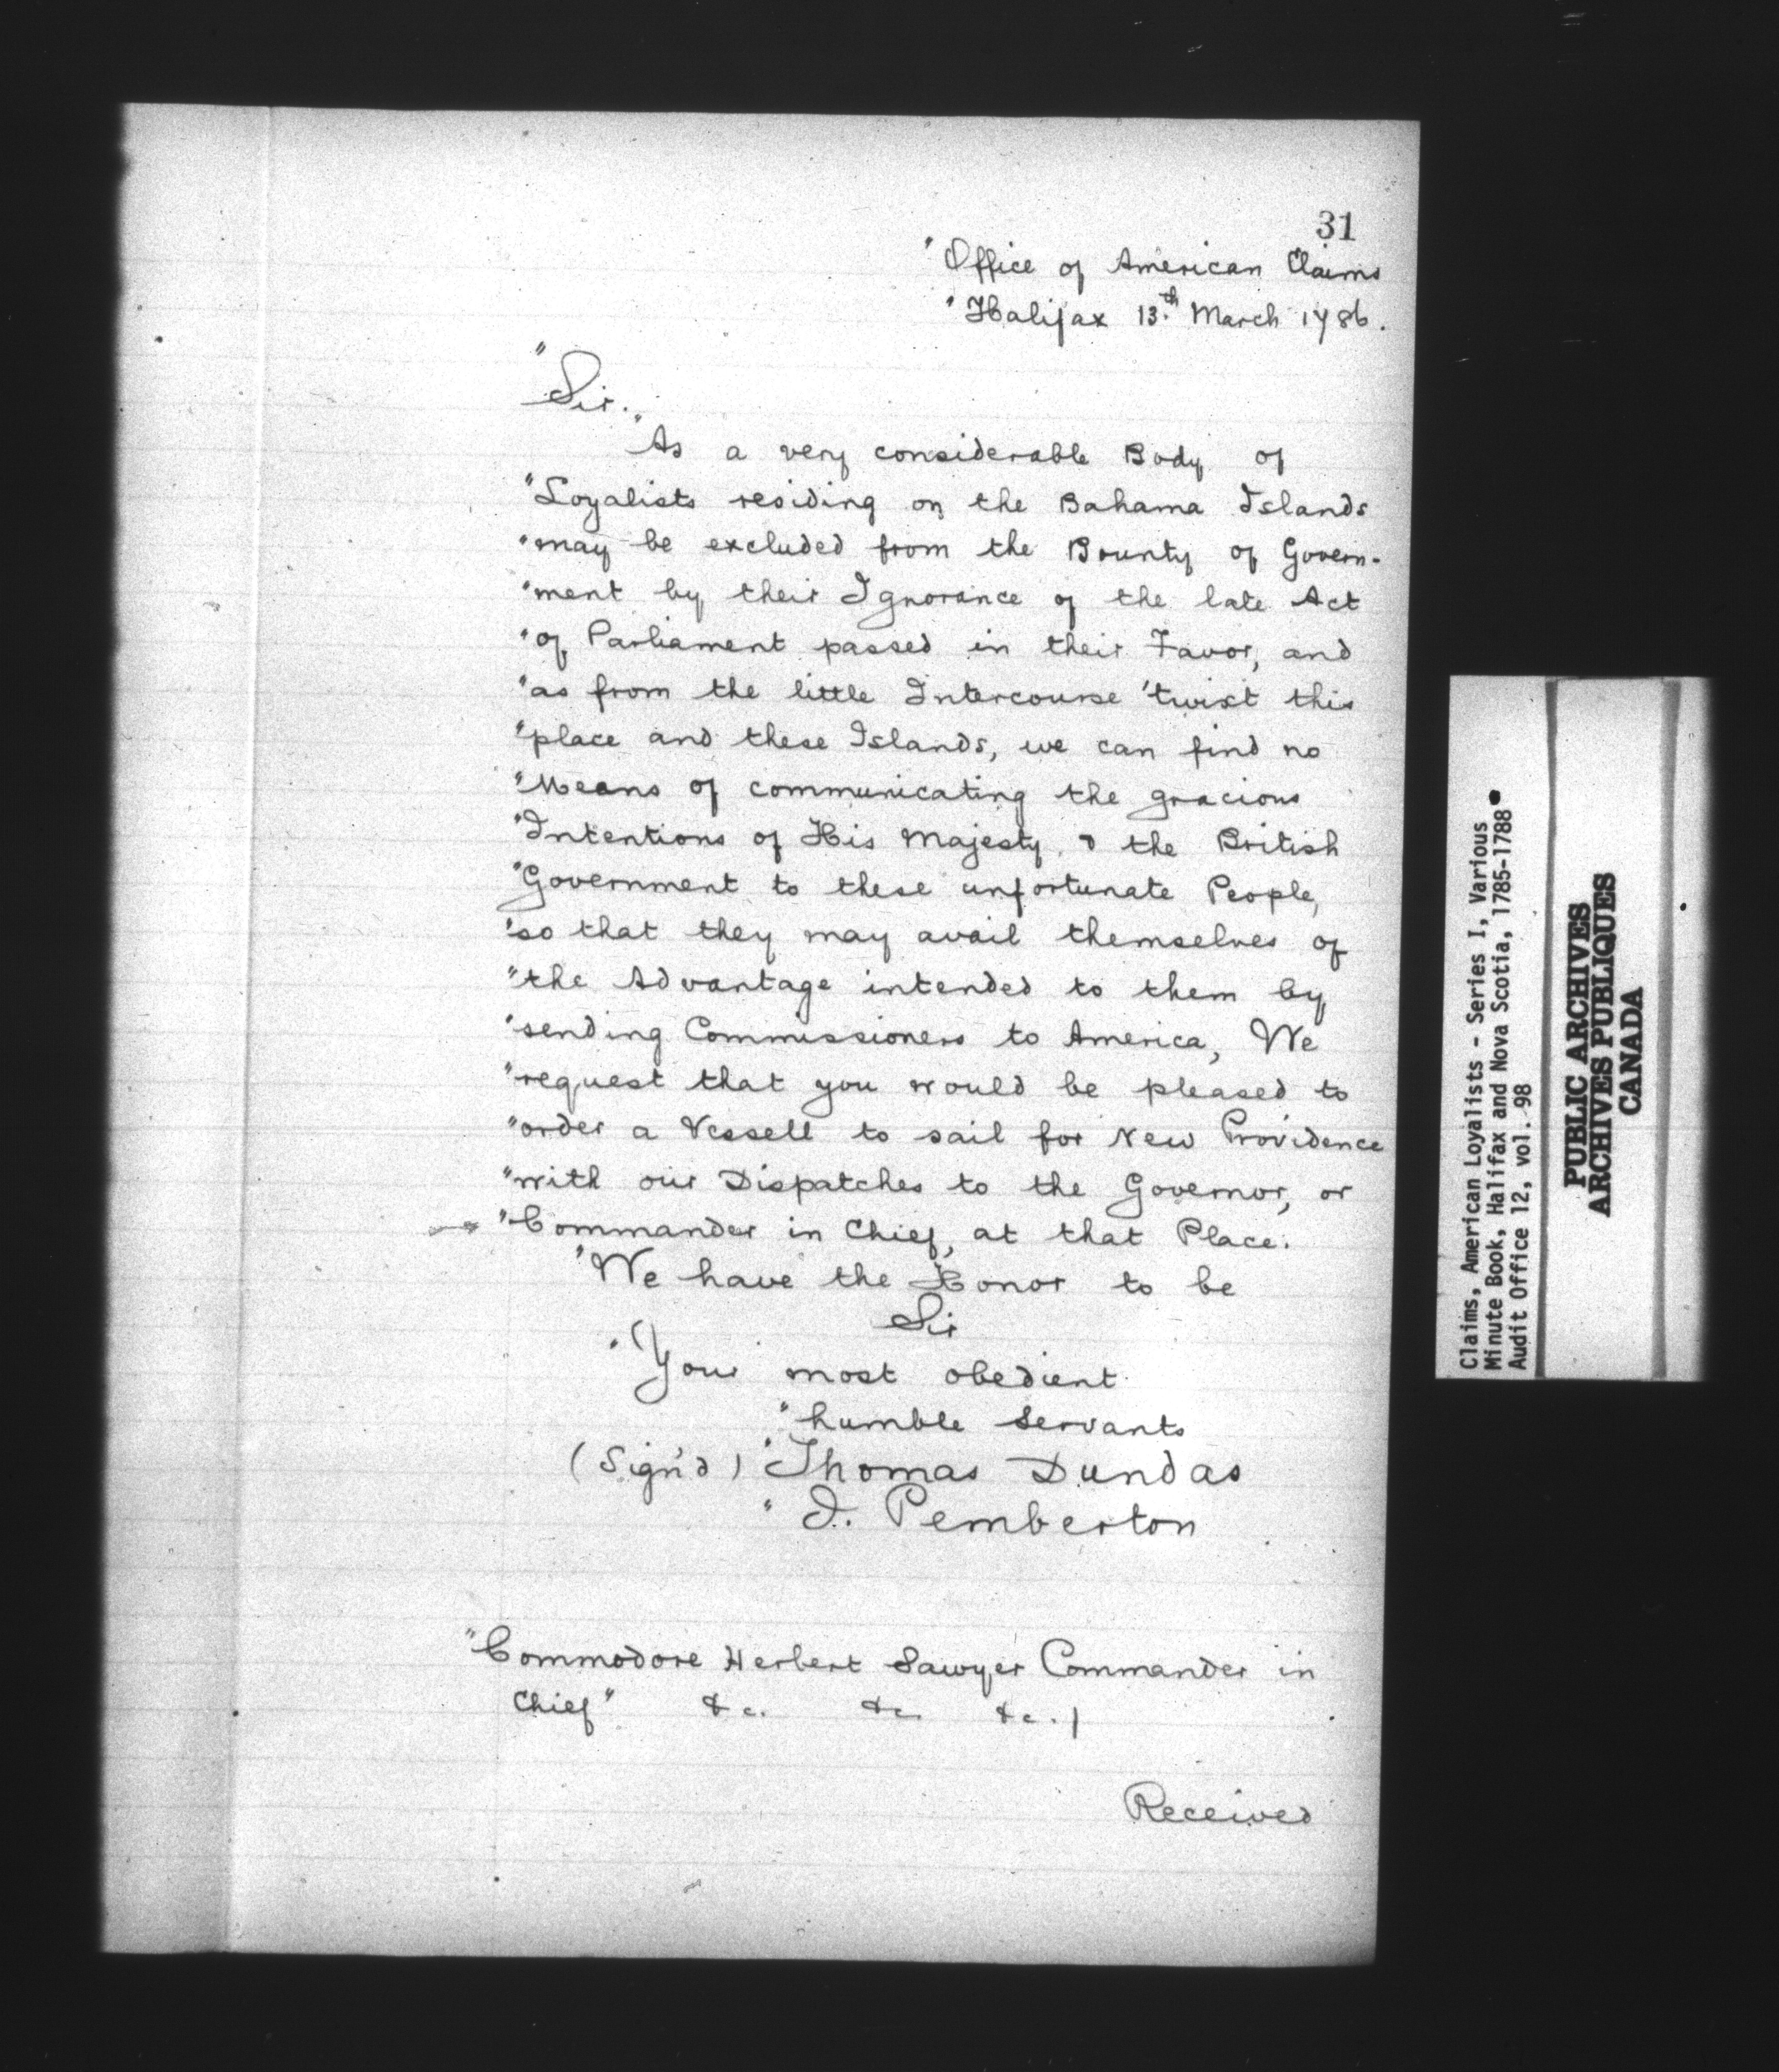 31
"Office of American Claims
"Halifax 13.th March 1786.
"Sir.
"As a very considerable Body of
"Loyalists residing on the Bahama Islands
"may be excluded from the Bounty of Govern-
"ment by their Ignorance of the late Act
"of Parliament passed in their Favor, and
"as from the little Intercourse 'twixt this
"place and these Islands, we can find no
"Means of communicating the gracious
"Intentions of His Majesty, & the British
"Government to these unfortunate People,
"so that they may avail themselves of
"the Advantage intended to them by
"sending Commissioners to America, We
"request that you would be pleased to
"order a Vessell to sail for New Providence
"with our Dispatches to the Governor, or
"Commander in Chief, at that Place.
"We have the Honor to be
Sir
"Your most obedient
"humble Servants
(Sign'd) "Thomas Dundas
" J. Pemberton
"Commodore Herbert Sawyer Commander in
Chief" &c. &c. &c.)
Received
Claims, American Loyalists - Series I, Various
Minute Book, Halifax and Nova Scotia, 1785-1788
Audit Office 12, vol. 98
PUBLIC ARCHIVES
ARCHIVES PUBLIQUES
CANADA